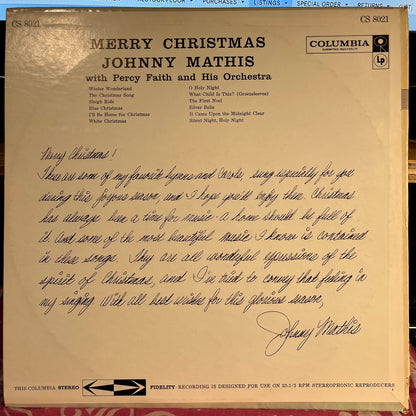 PURCHASES
LISTINGS
SPECIAL ORDER
RETURNS
CS 8021
CS 8021
MERRY CHRISTMAS
JOHNNY MATHIS
with Percy Faith and His Orchestra
COLUMBIA
Lp
Winter Wonderland
The Christmas Song
Sleigh Ride
Blue Christmas
I'll Be Home for Christmas
White Christmas
O Holy Night
What Child Is This? (Greensleeves)
The First Noel
Silver Bells
It Came Upon the Midnight Clear
Silent Night, Holy Night
Merry Christmas!
These are some of my favorite hymns and carols, sung especially for you
during this joyous season, and I hope you'll enjoy them. Christmas
has always been a time for music - a home should be full of
it. And some of the most beautiful music I know is contained
in these songs. They are all wonderful expressions of the
spirit of Christmas, and I've tried to convey that feeling in
my singing. With all best wishes for this glorious season,
Johnny Mathis
THIS COLUMBIA STEREO FIDELITY RECORDING IS DESIGNED FOR USE ON 33-1/3 RPM STEREOPHONIC REPRODUCERS